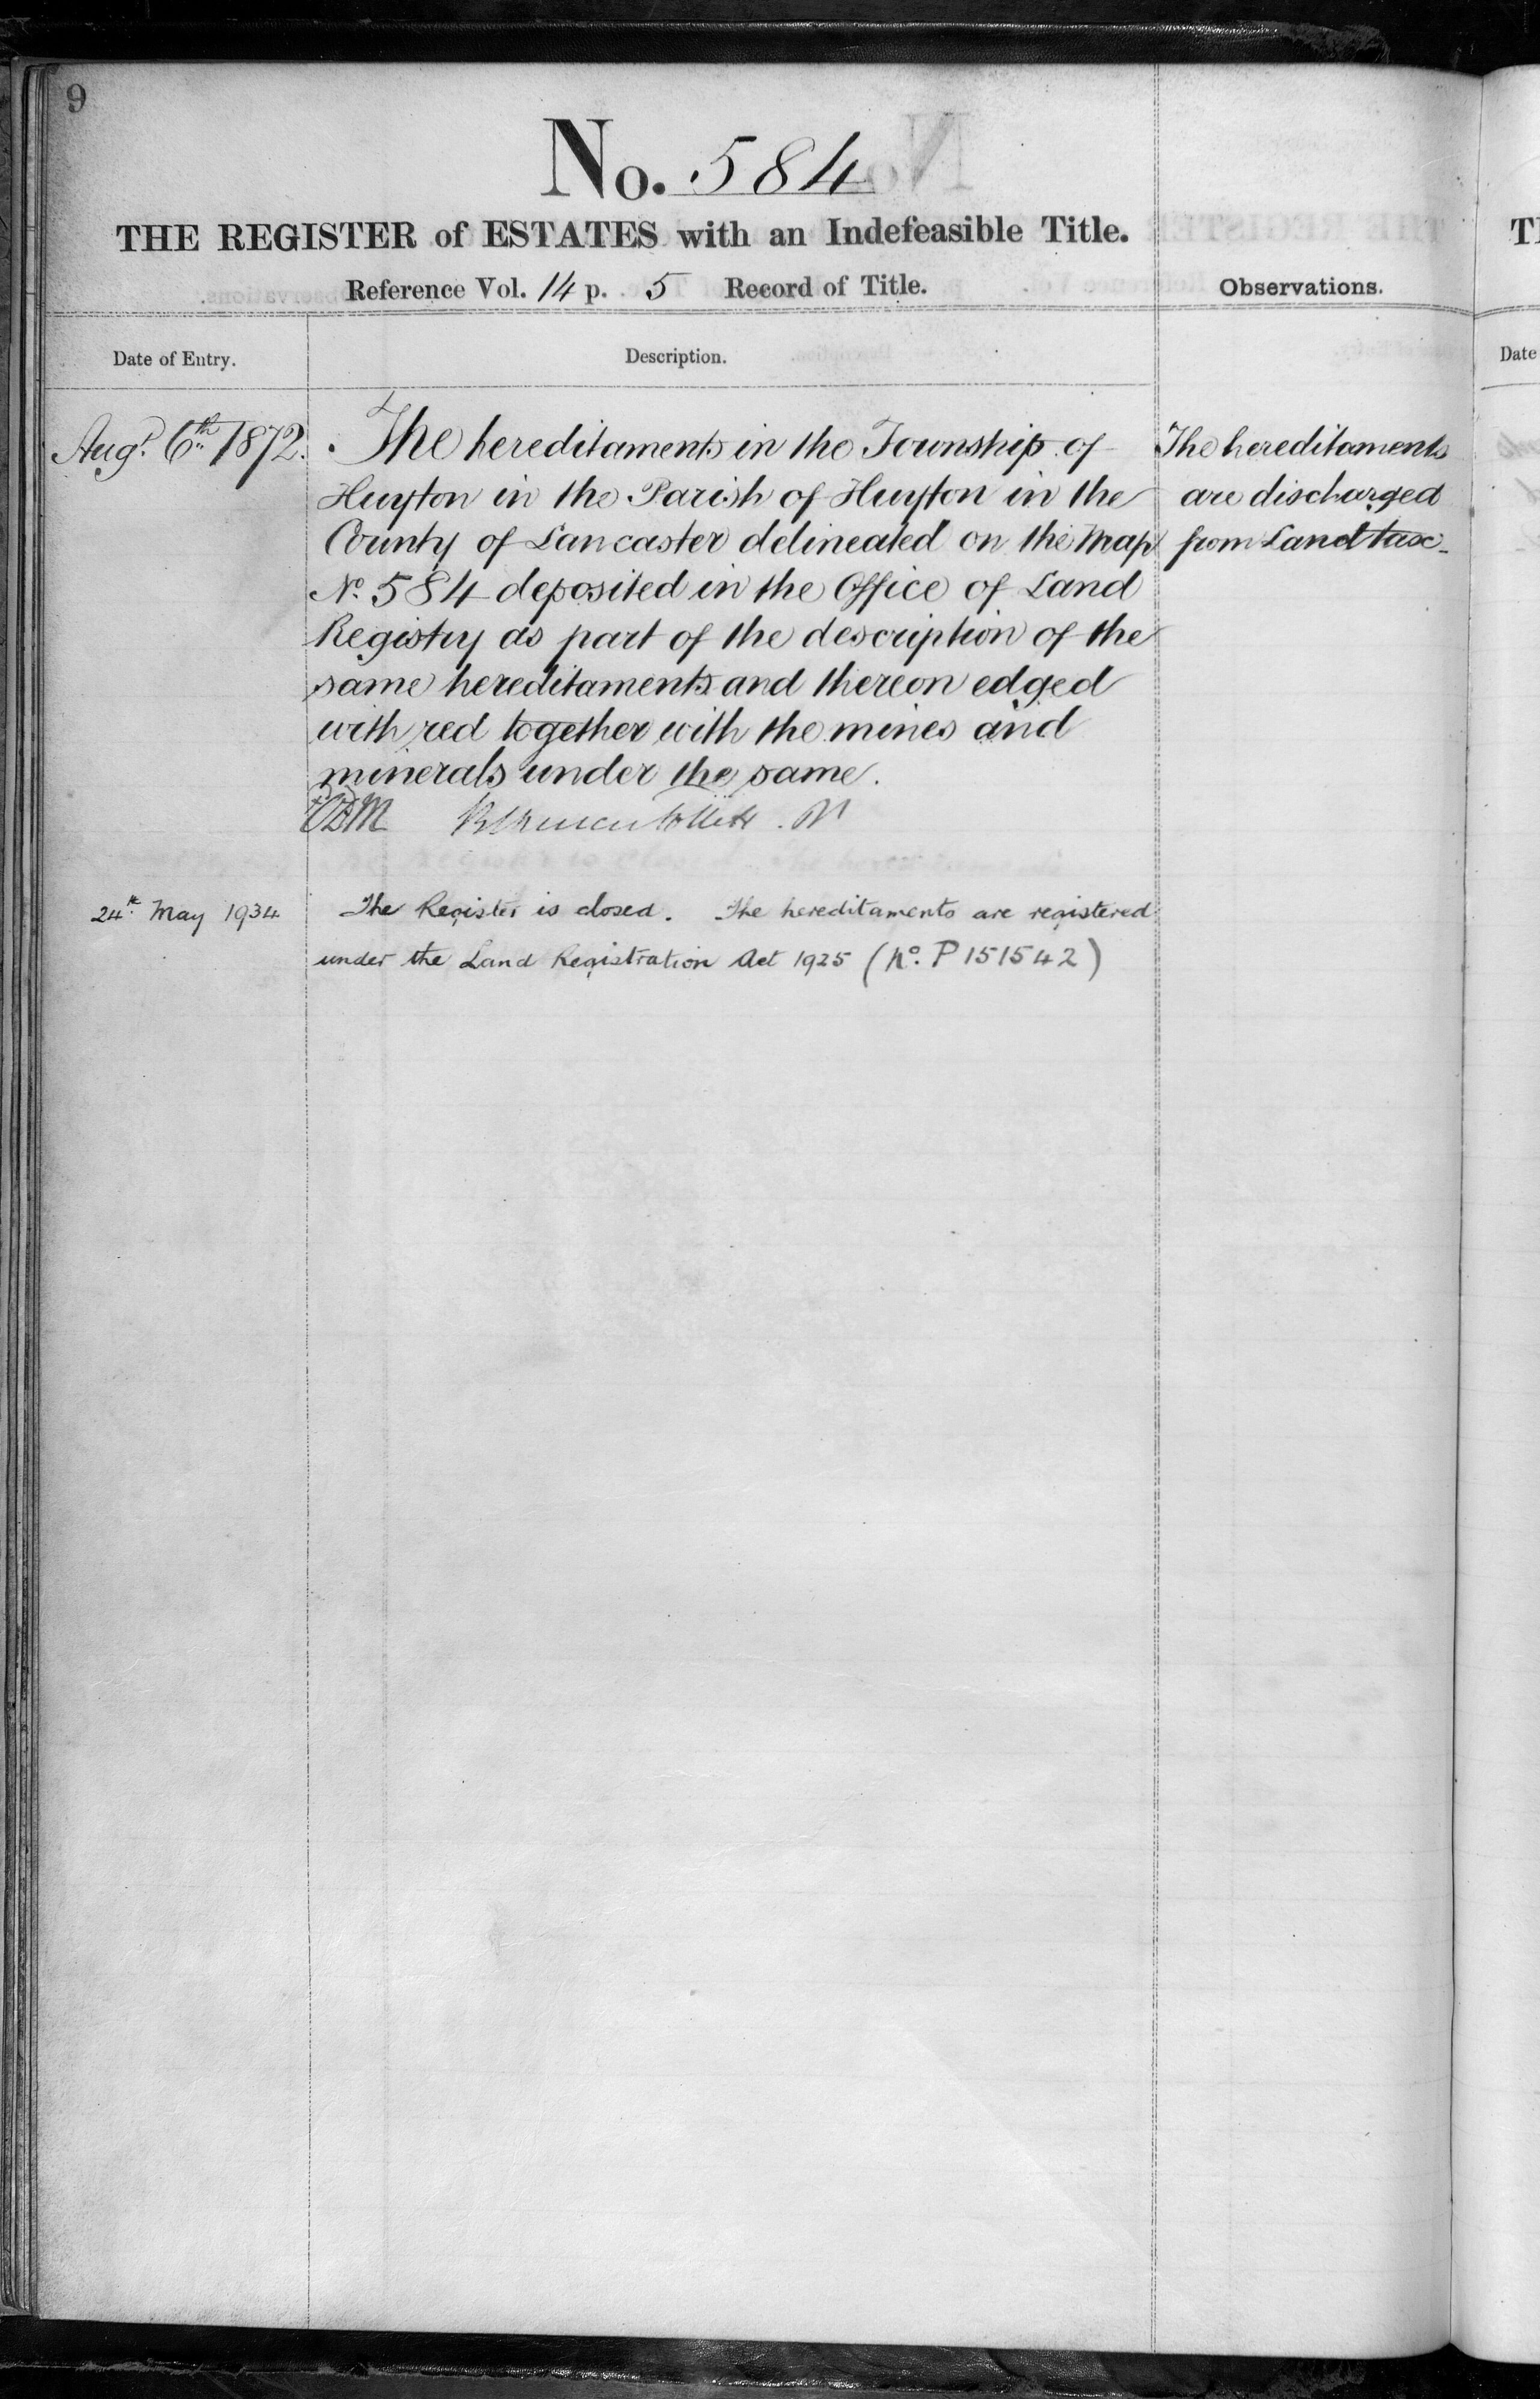 9
No. 584
THE REGISTER of ESTATES with an Indefeasible Title.
Reference Vol. 14 p. 5 Record of Title.
Observations.
Date of Entry.
Description.
Augt. 6th 1872.
The hereditaments in the Township of
Huyton in the Parish of Huyton in the
County of Lancaster delineated on the Map
No. 584 deposited in the Office of Land
Registry as part of the description of the
same hereditaments and thereon edged
with red together with the mines and
minerals under the same.
The hereditaments
are discharged
from Land tax
24th May 1934
The Register is closed. The hereditaments are registered
under the Land Registration Act 1925 (No. P 151542)
Date